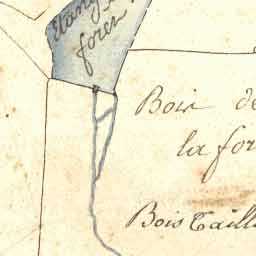 Etang
forer
Bois de
la for
Bois Taill